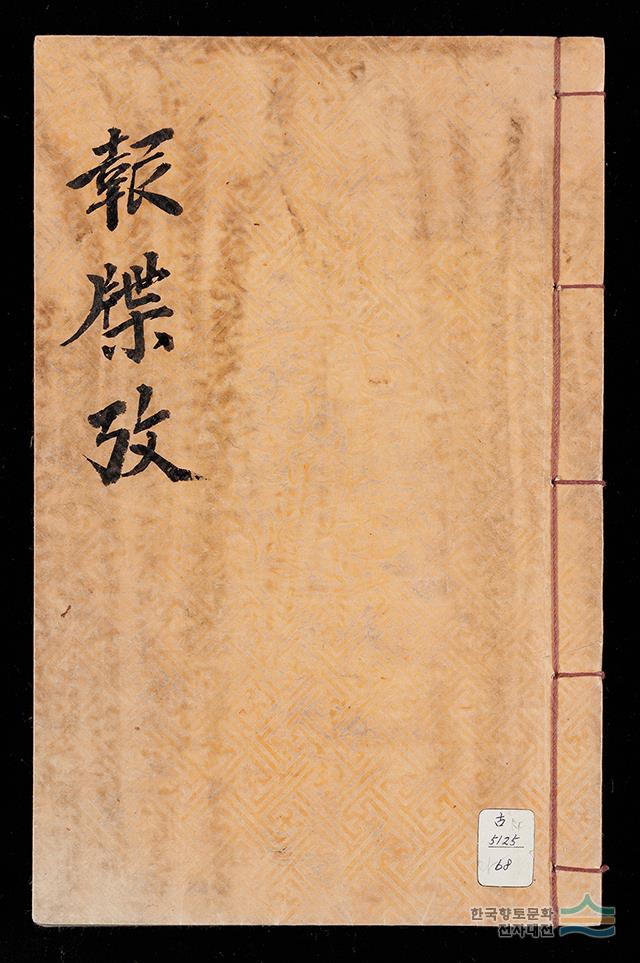 報牒攷
古
5125
68
한국향토문화
전자대전